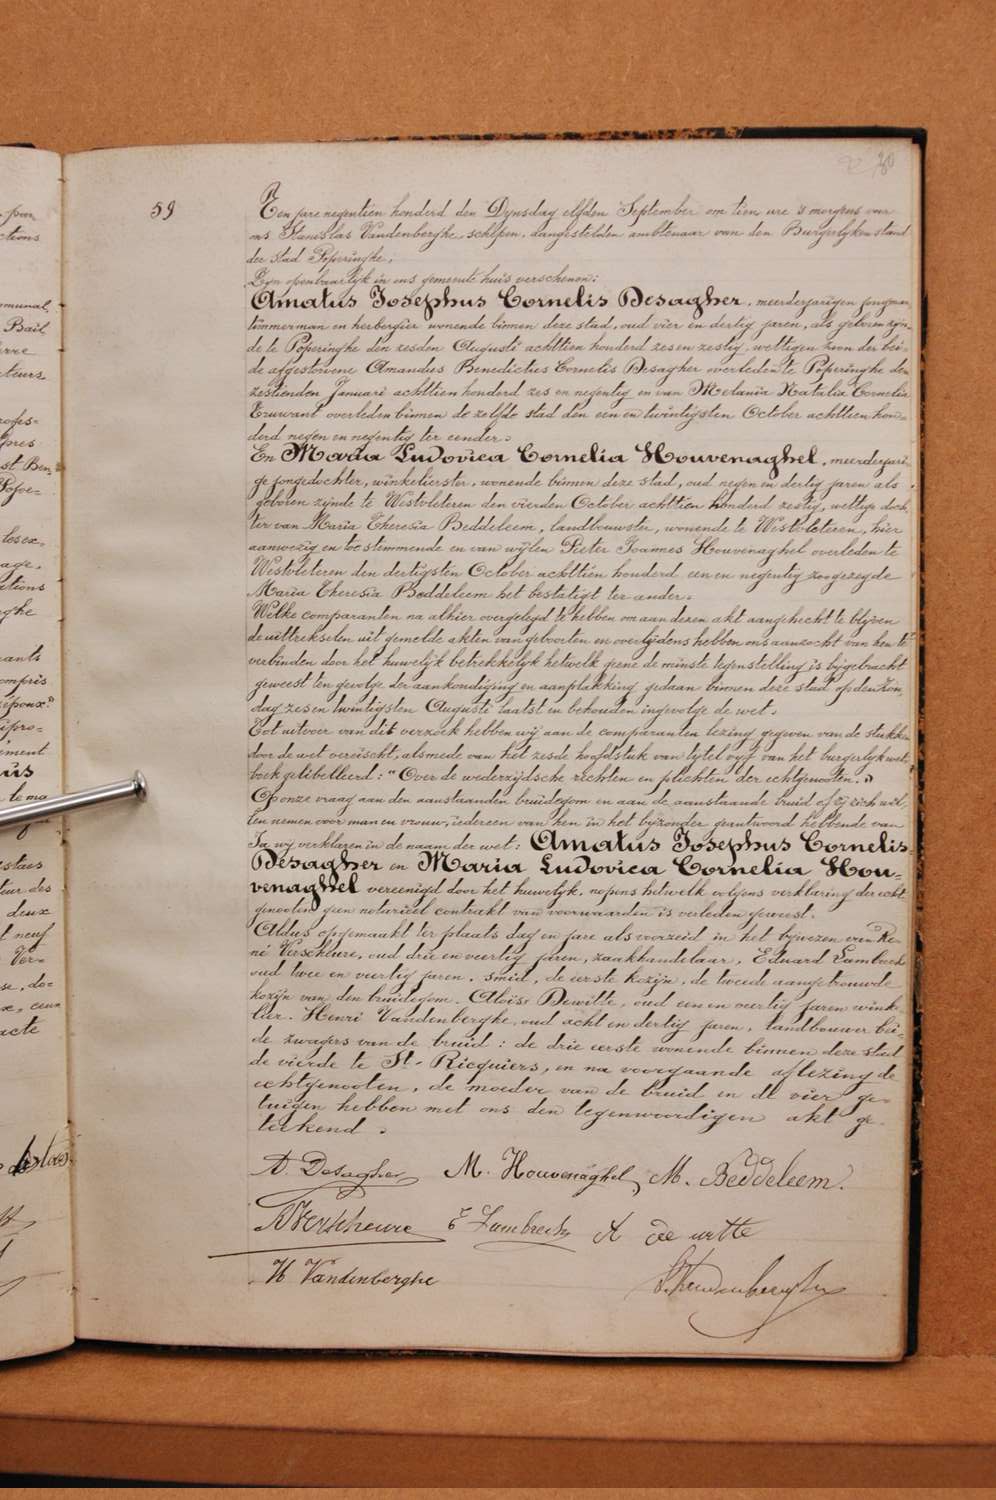 80
59
Ten jare negentien honderd den Dynsdag elfden September om tien ure 's morgens voor
ons Stanislas Vandenberghe, schepen, aangestelden ambtenaar van den Burgerlyken stand
der stad Poperinghe,
Zyn openbaarlyk in ons gemeente huis verschenen:
Amatus Josephus Cornelis Desagher, meerderjarigen jongman
timmerman en herbergier wonende binnen deze stad, oud vier en dertig jaren, als geboren zyn-
de te Poperinghe den zesden Augusti achttien honderd zes en zestig, wettigen zoon der bei-
de afgestorvene Amandus Benedictus Cornelis Desagher overleden te Poperinghe den
zestienden Januari achttien honderd zes en negentig en van Melania Natalia Cornelia
Eruwant overleden binnen de zelfde stad den een en twintigsten October achttien hon-
derd negen en negentig ter eender.
En Maria Ludovica Cornelia Houvenaghel, meerderjari-
ge jongedochter, winkelierster, wonende binnen deze stad, oud negen en dertig jaren als
geboren zijnde te Westvleteren den vierden October achttien honderd zestig, wettige doch-
ter van Maria Theresia Beddeleem, landbouwster, wonende te Westvleteren, hier
aanwezig en toestemmende en van wijlen Pieter Joannes Houvenaghel overleden te
Westvleteren den dertigsten October achttien honderd een en negentig zoo gezegde
Maria Theresia Beddeleem het bestatigt ter ander.
Welke comparanten na alhier overgelegd te hebben om aan deren akt aangehecht te blyven
de uittrekselen uit gemelde akten van geboorten en overlijdens hebben ons aanzocht van hen te
verbinden door het huwelijk betrekkelyk hetwelk geene de minste tegenstelling is bygebracht
geweest ten gevolge der aankondiging en aanplakking gedaan binnen deze stad op den Zon-
dag zes en twintigsten Augusti laatst en behouden ingevolge de wet.
Tot uitvoer van dit verzoek hebben wy aan de comparanten lezing gegeven van de stukken
door de wet vereischt, alsmede van het zesde hoofdstuk van tytel vyf van het burgerlyk wet-
boek getibelleerd: "Over de wederzijdsche rechten en plichten der echtgenooten."
Op onze vraag aan den aanstaanden bruidegom en aan de aanstaande bruid of zy zich wil-
len nemen voor man en vrouw, iedereen van hen in het byzonder geantwoord hebbende van
Ja wy verklaren in de naam der wet: Amatus Josephus Cornelis
Desagher en Maria Ludovica Cornelia Hou-
venaghel vereenigd door het huwelyk, nopens hetwelk volgens verklaring der echt-
genooten geen notarieel contrakt van voorwaarden is verleden geweest.
Aldus opgemaakt ter plaats dag en jare als voorzeid in het bywezen van Re-
né Verscheure, oud drie en veertig jaren, zaakhandelaar, Eduard Lambrecht
oud twee en veertig jaren, smid, de eerste kozijn, de tweede aangetrouwde
kozijn van den bruidegom. Aloïs Dewitte, oud een en veertig jaren winke-
lier. Henri Vandenberghe, oud acht en dertig jaren, landbouwer bei-
de zwagers van de bruid: de drie eerste wonende binnen deze stad
de vierde te St. Ricquiers, en na voorgaande aflezing de
echtgenooten, de moeder van de bruid en de vier ge-
tuigen hebben met ons den tegenwoordigen akt ge-
teekend.
A. Desagher M. Houvenaghel M. Beddeleem.
R Verscheure E Lambrecht A de witte
H Vandenberghe S. Vandenberghe